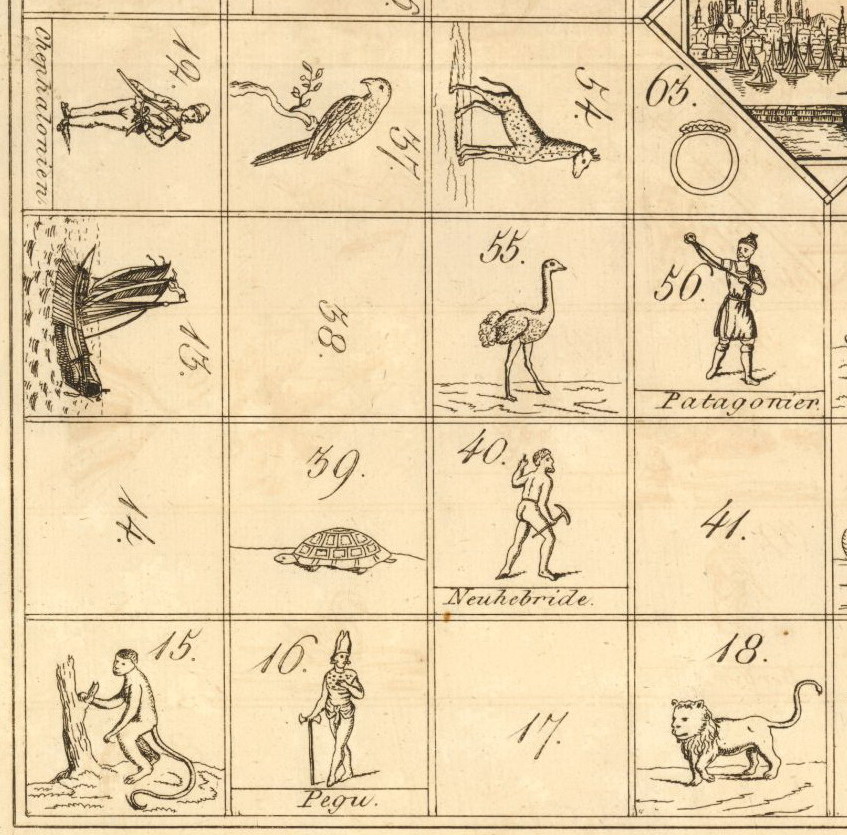 Chephalonien.
12.
37.
54.
63.
13.
38.
55.
56.
Patagonier
14.
39.
40.
Neuhebride.
41.
15.
16.
Pegu.
17.
18.